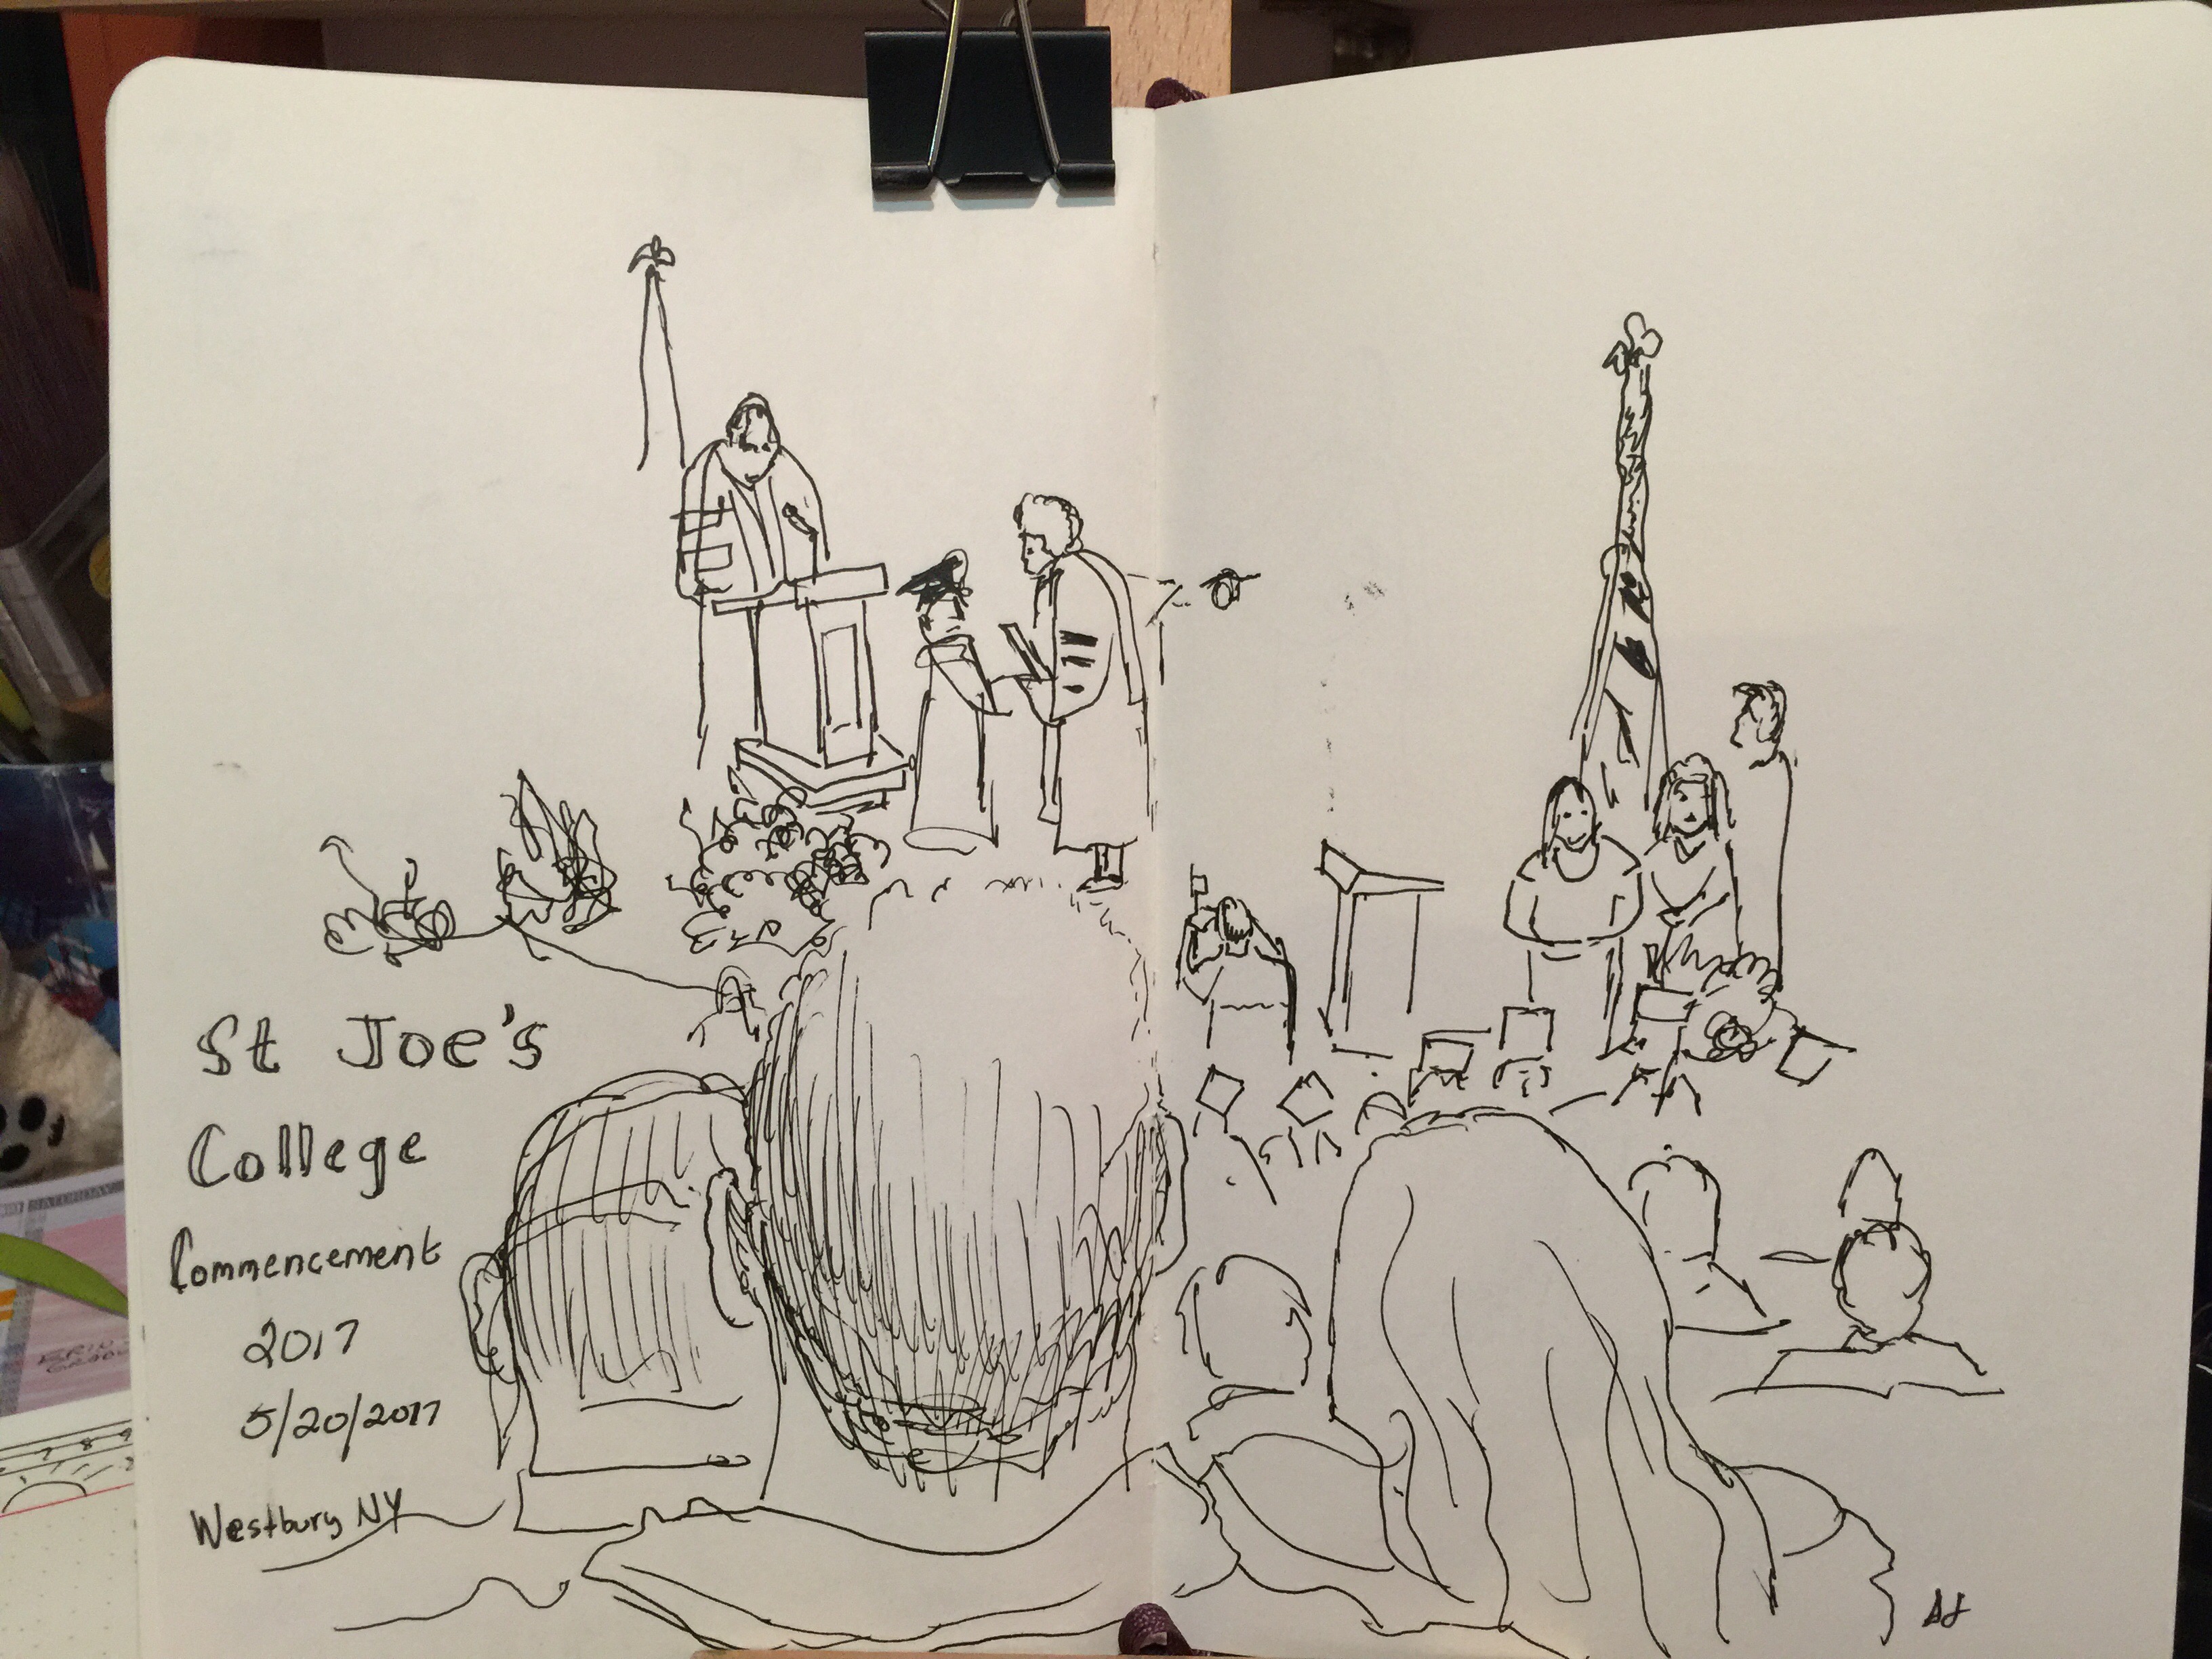 St Joe's
College
Commencement
2017
5/20/2017
Westbury NY
SATURDAY